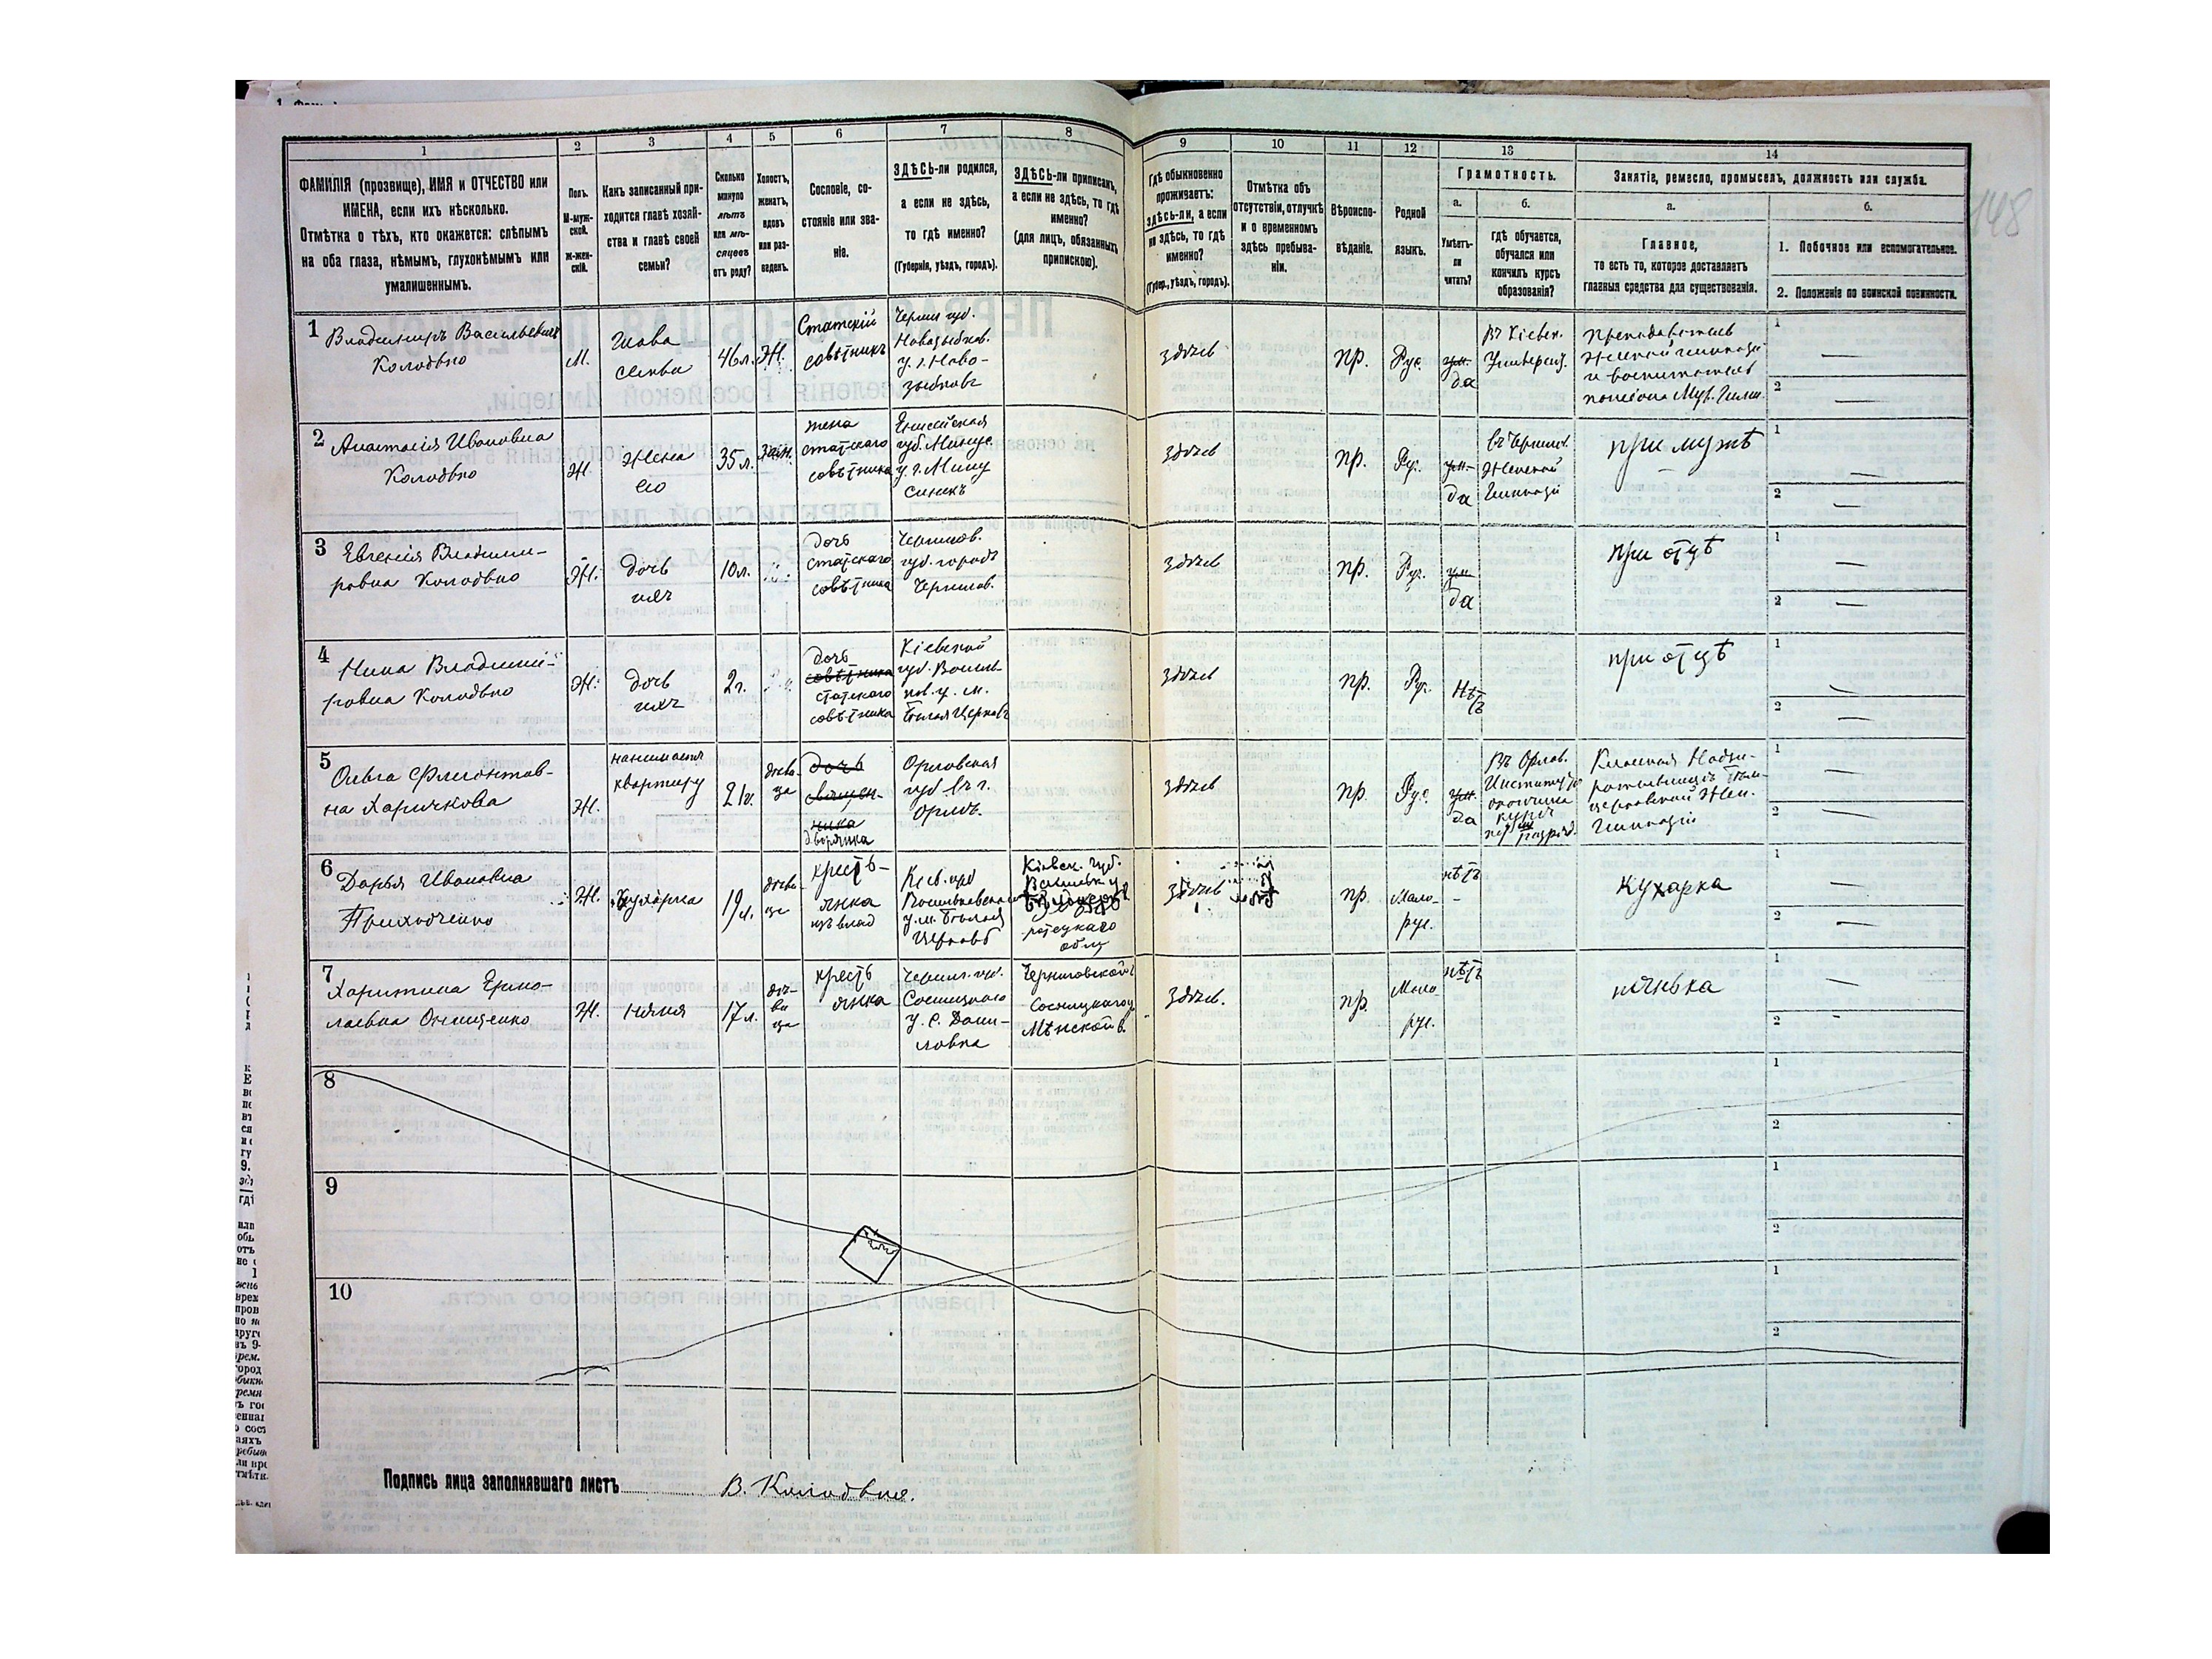 1
2
3
4
5
6
7
8
9
10
11
12
13
14
ФАМИЛІЯ (прозвище), ИМЯ и ОТЧЕСТВО или
ИМЕНА, если ихъ нѣсколько.
Отмѣтка о тѣхъ, кто окажется: слѣпымъ
на оба глаза, нѣмымъ, глухонѣмымъ или
умалишеннымъ.
Полъ.
М-муж-
ской.
Ж-жен-
скій.
Какъ записанный при-
ходится главѣ хозяй-
ства и главѣ своей
семьи?
Сколько
минуло
лѣтъ
или мѣ-
сяцевъ
отъ роду?
Холостъ,
женатъ,
вдовъ
или раз-
веденъ.
Сословіе, со-
стояніе или зва-
ніе.
ЗДѢСЬ-ли родился,
а если не здѣсь,
то гдѣ именно?
(Губернія, уѣздъ, городъ).
ЗДѢСЬ-ли приписанъ,
а если не здѣсь, то гдѣ
именно?
(для лицъ, обязанныхъ
припискою).
Гдѣ обыкновенно
проживаетъ:
здѣсь-ли, а если
не здѣсь, то гдѣ
именно?
(Губер., уѣздъ, городъ).
Отмѣтка объ
отсутствіи, отлучкѣ
и о временномъ
здѣсь пребыва-
ніи.
Вѣроиспо-
вѣданіе.
Родной
языкъ.
Грамотность.
а.
б.
Умѣетъ-
ли
читать?
гдѣ обучается,
обучался или
кончилъ курсъ
образованія?
Занятіе, ремесло, промыселъ, должность или служба.
а.
б.
Главное,
то есть то, которое доставляетъ
главныя средства для существованія.
1. Побочное или вспомогательное.
2. Положеніе по воинской повинности.
148
1
Владимиръ Васильевичъ
Колодько
М.
Глава
семьи
46 л.
Ж.
Статскій
совѣтникъ
Черниг. губ.
Новозыбков.
у. г. Ново-
зыбковъ
здѣсь
пр.
Рус.
ум.
да
Въ Кіевск.
Университ.
Преподаватель
Женской гимназіи
и воспитатель
пансіона Муж. Гимн.
1
2
2
Анастасія Ивановна
Колодько
Ж.
Жена
его
35 л.
Зам.
жена
статскаго
совѣтника
Енисейская
губ. Минус.
у. г. Мину
синскъ
здѣсь
пр.
Рус.
ум.
да
въ Чернигов.
Женской
Гимназіи
при мужѣ
1
2
3
Евгенія Владими-
ровна Колодько
Ж.
дочь
ихъ
10 л.
дочь
статскаго
совѣтника
Чернигов.
губ. городъ
Чернигов.
здѣсь
пр.
Рус.
ум.
да
при отцѣ
1
2
4
Нина Владими-
ровна Колодько
Ж.
дочь
ихъ
2 г.
дочь
совѣтника
статскаго
совѣтника
Кіевской
губ. Василь-
ков. у. м.
Бѣлая Церковь
здѣсь
пр.
Рус.
Нѣтъ
при отцѣ
1
2
5
Ольга Флегонтов-
на Харичкова
Ж.
нанимаетъ
квартиру
21 г.
дѣви-
ца
дочь
священ-
ника
дворянка
Орловская
губ. въ г.
Орлѣ.
здѣсь
пр.
Рус.
ум.
да
Въ Орлов.
Институтѣ
окончила
курсъ
Классная Надзи-
рательница Бѣло-
церковской Жен.
Гимназіи
1
2
6
Дарья Ивановна
Приходченко
Ж.
Кухарка
19 л.
дѣви-
ца
кресть-
янка
изъ влад
Кіев. губ
Васильковскаго
у. м. Бѣлая
Церковь
Кіевск. губ.
Васильк. у.
здѣсь
пр.
Мало-
рус.
нѣтъ
кухарка
1
2
7
Харитина Ермо-
лаевна Онищенко
Ж.
няня
17 л.
дѣ-
ви
ца
кресть
янка
Черниг. губ.
Сосницкаго
у. с. Дани-
ловка
Черниговской г.
Сосницкаго у.
Мѣнской в.
здѣсь.
пр.
Мало
рус.
нѣтъ
нянька
1
2
8
1
2
9
1
2
10
1
2
Подпись лица заполнявшаго листъ В. Колодько.